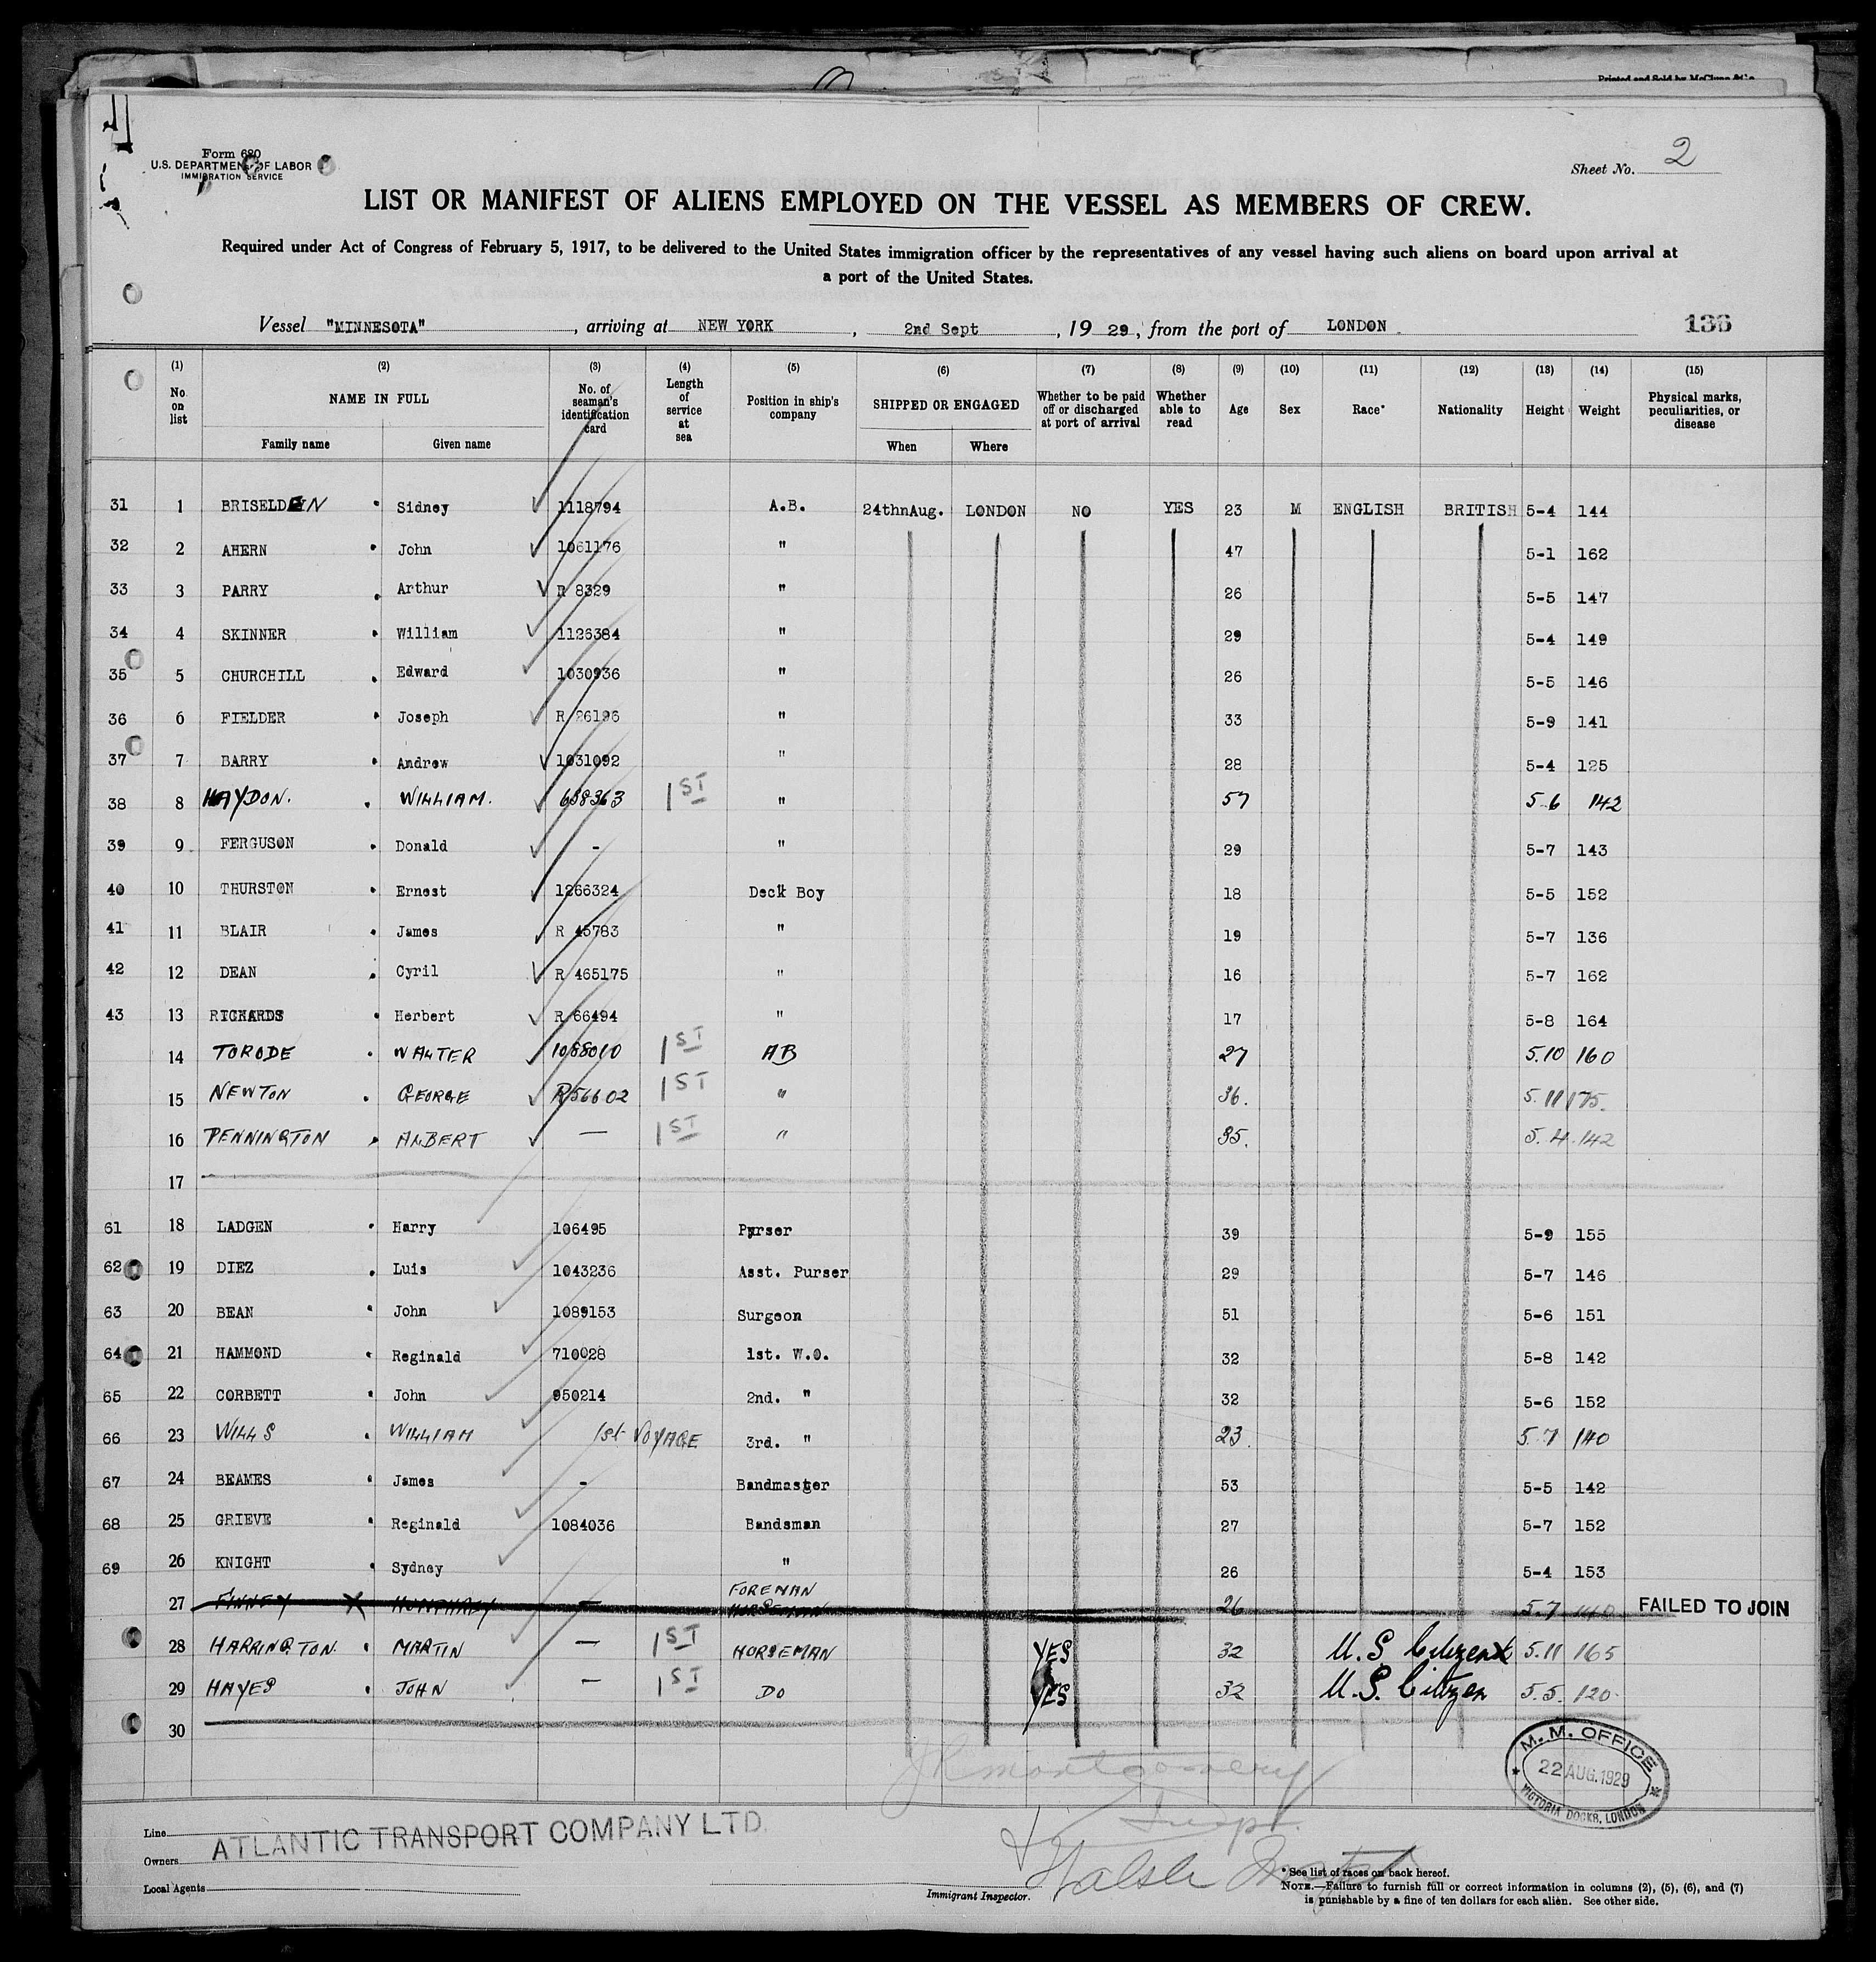 Printed and Sold by McClune & Co
Form 680
U.S. DEPARTMENT OF LABOR
IMMIGRATION SERVICE
Sheet No. 2
LIST OR MANIFEST OF ALIENS EMPLOYED ON THE VESSEL AS MEMBERS OF CREW.
Required under Act of Congress of February 5, 1917, to be delivered to the United States immigration officer by the representatives of any vessel having such aliens on board upon arrival at
a port of the United States.
Vessel "MINNESOTA", arriving at NEW YORK, 2nd Sept, 19 29, from the port of LONDON
136
(1) (2) (3) (4) (5) (6) (7) (8) (9) (10) (11) (12) (13) (14) (15)
No. on list NAME IN FULL Family name Given name No. of seaman's identification card Length of service at sea Position in ship's company SHIPPED OR ENGAGED When Where Whether to be paid off or discharged at port of arrival Whether able to read Age Sex Race* Nationality Height Weight Physical marks, peculiarities, or disease
31 1 BRISELDEN Sidney 1118794 A.B. 24thnAug. LONDON NO YES 23 M ENGLISH BRITISH 5-4 144
32 2 AHERN John 1061176 " 47 5-1 162
33 3 PARRY Arthur R 8329 " 26 5-5 147
34 4 SKINNER William 1126384 " 29 5-4 149
35 5 CHURCHILL Edward 1030936 " 26 5-5 146
36 6 FIELDER Joseph R 26196 " 33 5-9 141
37 7 BARRY Andrew 1031092 " 28 5-4 125
38 8 HAYDON. WILLIAM. 638363 1ST " 57 5.6 142
39 9 FERGUSON Donald - " 29 5-7 143
40 10 THURSTON Ernest 1266324 Deck Boy 18 5-5 152
41 11 BLAIR James R 45783 " 19 5-7 136
42 12 DEAN Cyril R 465175 " 16 5-7 162
43 13 RICHARDS Herbert R 66494 " 17 5-8 164
14 TORODE WALTER 1088010 1ST AB 27 5.10 160
15 NEWTON GEORGE R56602 1ST " 36. 5.11 175.
16 PENNINGTON ALBERT — 1ST " 35. 5.4 142
17
61 18 LADGEN Harry 106495 Purser 39 5-9 155
62 19 DIEZ Luis 1043236 Asst. Purser 29 5-7 146
63 20 BEAN John 1089153 Surgeon 51 5-6 151
64 21 HAMMOND Reginald 710028 1st. W.O. 32 5-8 142
65 22 CORBETT John 950214 2nd. " 32 5-6 152
66 23 WILLS WILLIAM 1st VOYAGE 3rd. " 23. 5.7 140
67 24 BEAMES James - Bandmaster 53 5-5 142
68 25 GRIEVE Reginald 1084036 Bandsman 27 5-7 152
69 26 KNIGHT Sydney " 26 5-4 153
27 FINNEY X HUMPHREY — FOREMAN HORSEMAN 26 5.7 140 FAILED TO JOIN
28 HARRINGTON MARTIN — 1ST HORSEMAN YES 32 U.S Citizen 5.11 165
29 HAYES JOHN — 1ST DO YES 32 U.S. Citizen 5.5. 120
30
M. M. OFFICE
22 AUG. 1929
VICTORIA DOCKS, LONDON
Montgomery
Insp.
Line
ATLANTIC TRANSPORT COMPANY LTD.
Owners
Local Agents
Walsh
Immigrant Inspector.
* See list of races on back hereof.
NOTE.—Failure to furnish full or correct information in columns (2), (5), (6), and (7)
is punishable by a fine of ten dollars for each alien. See other side.